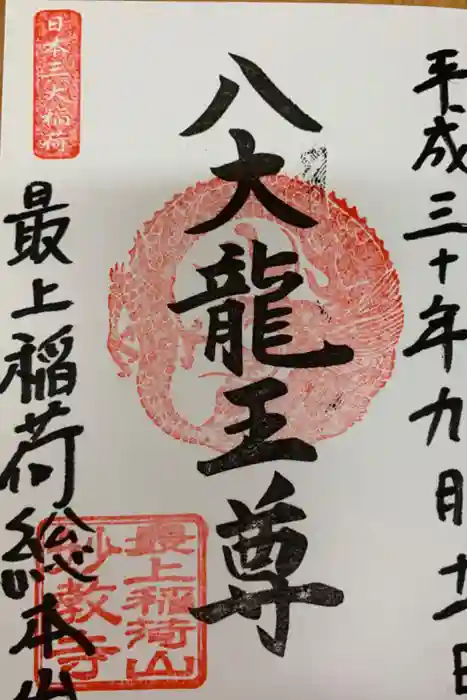 平成三十年九月十一日
八大龍王尊
日本三大稲荷
最上稲荷総本山
最上稲荷山
妙教寺